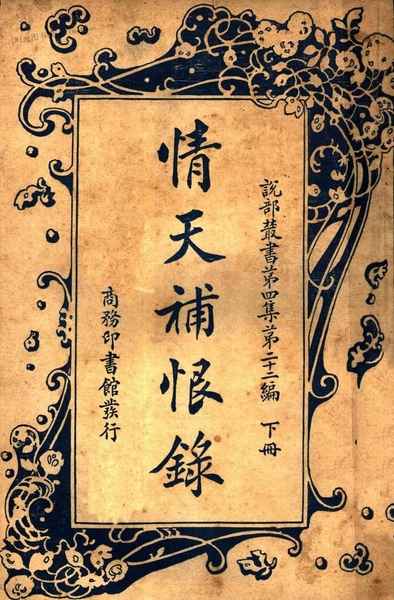 說部叢書第四集第二十二編 下冊
情天補恨錄
商務印書館發行